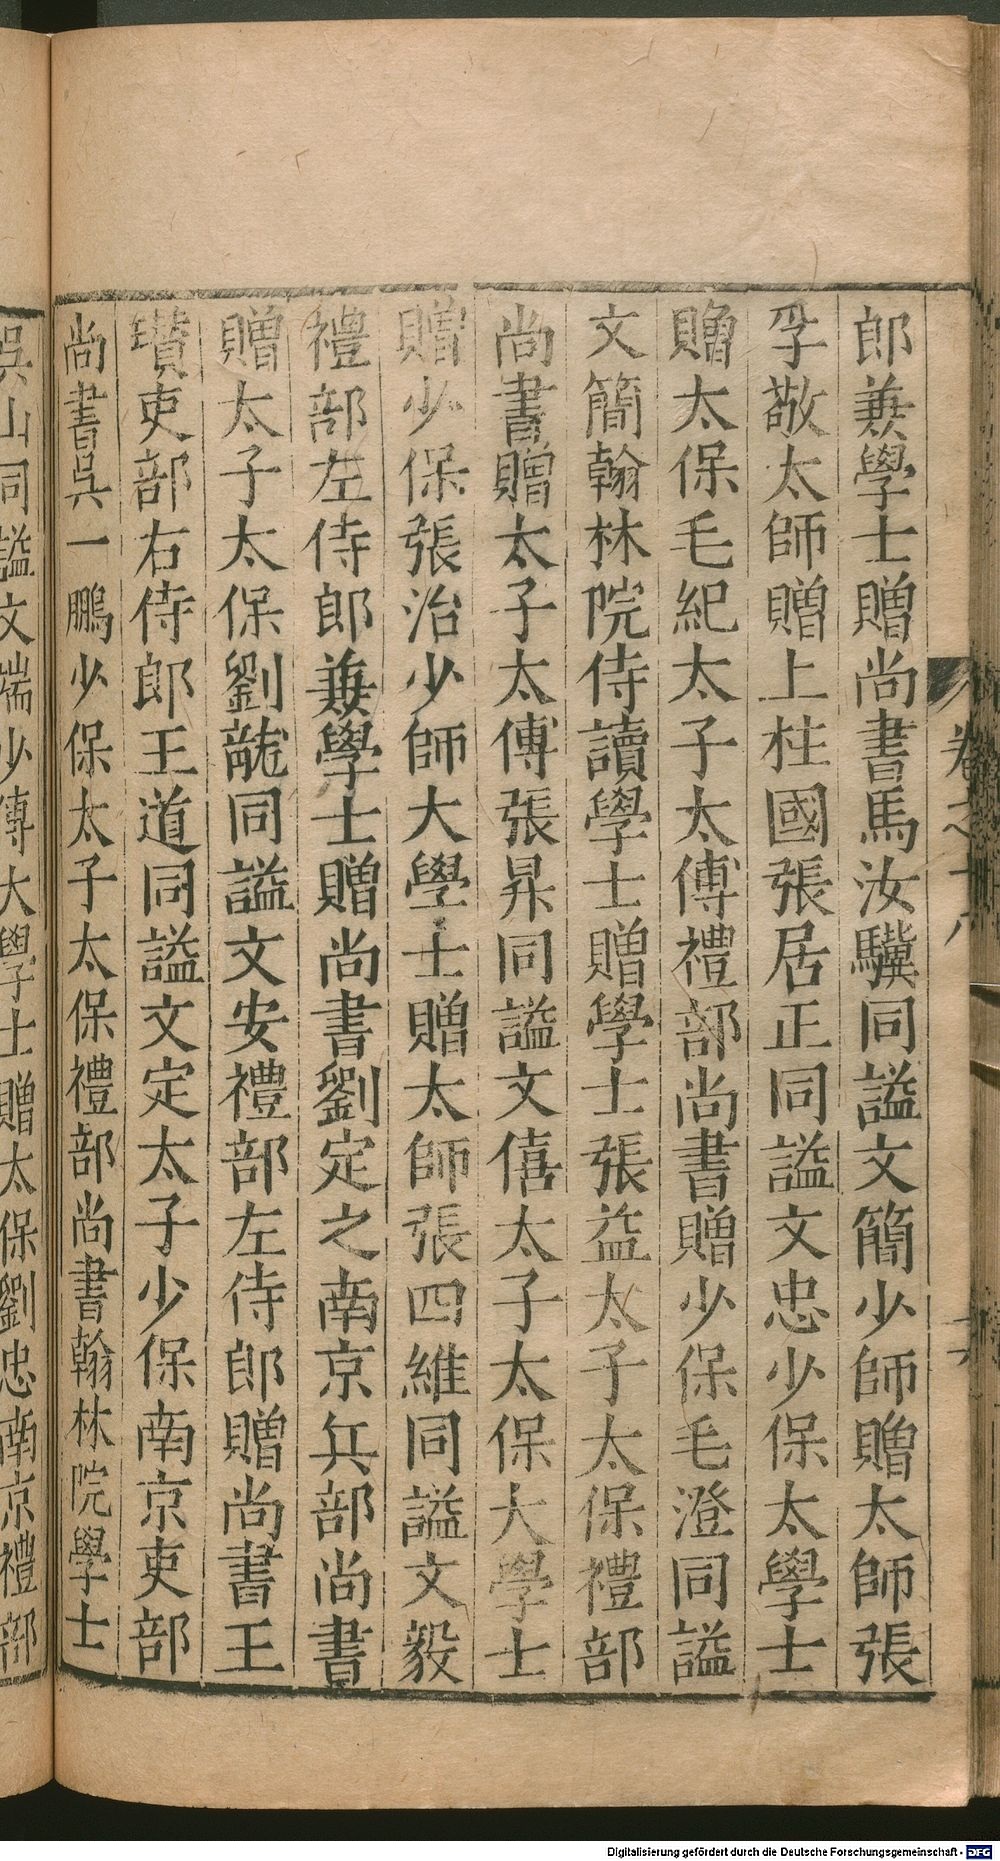 郎兼學士贈尚書馬汝驥同謚文簡少師贈太師張
孚敬太師贈上柱國張居正同謚文忠少保太學士
贈太保毛紀太子太傅禮部尚書贈少保毛澄同謚
文簡翰林院侍讀學士贈學士張益太子太保禮部
尚書贈太子太傅張昇同謚文僖太子太保大學士
贈少保張治少師大學士贈太師張四維同謚文毅
禮部左侍郎兼學士贈尚書劉定之南京兵部尚書
贈太子太保劉龍同謚文安禮部左侍郎贈尚書王
瓚吏部右侍郎王道同謚文定太子少保南京吏部
尚書吳一鵬少保太子太保禮部尚書翰林院學士
吳山同謚文端少傅大學士贈太保劉忠南京禮部
Digitalisierung gefördert durch die Deutsche Forschungsgemeinschaft - DFG